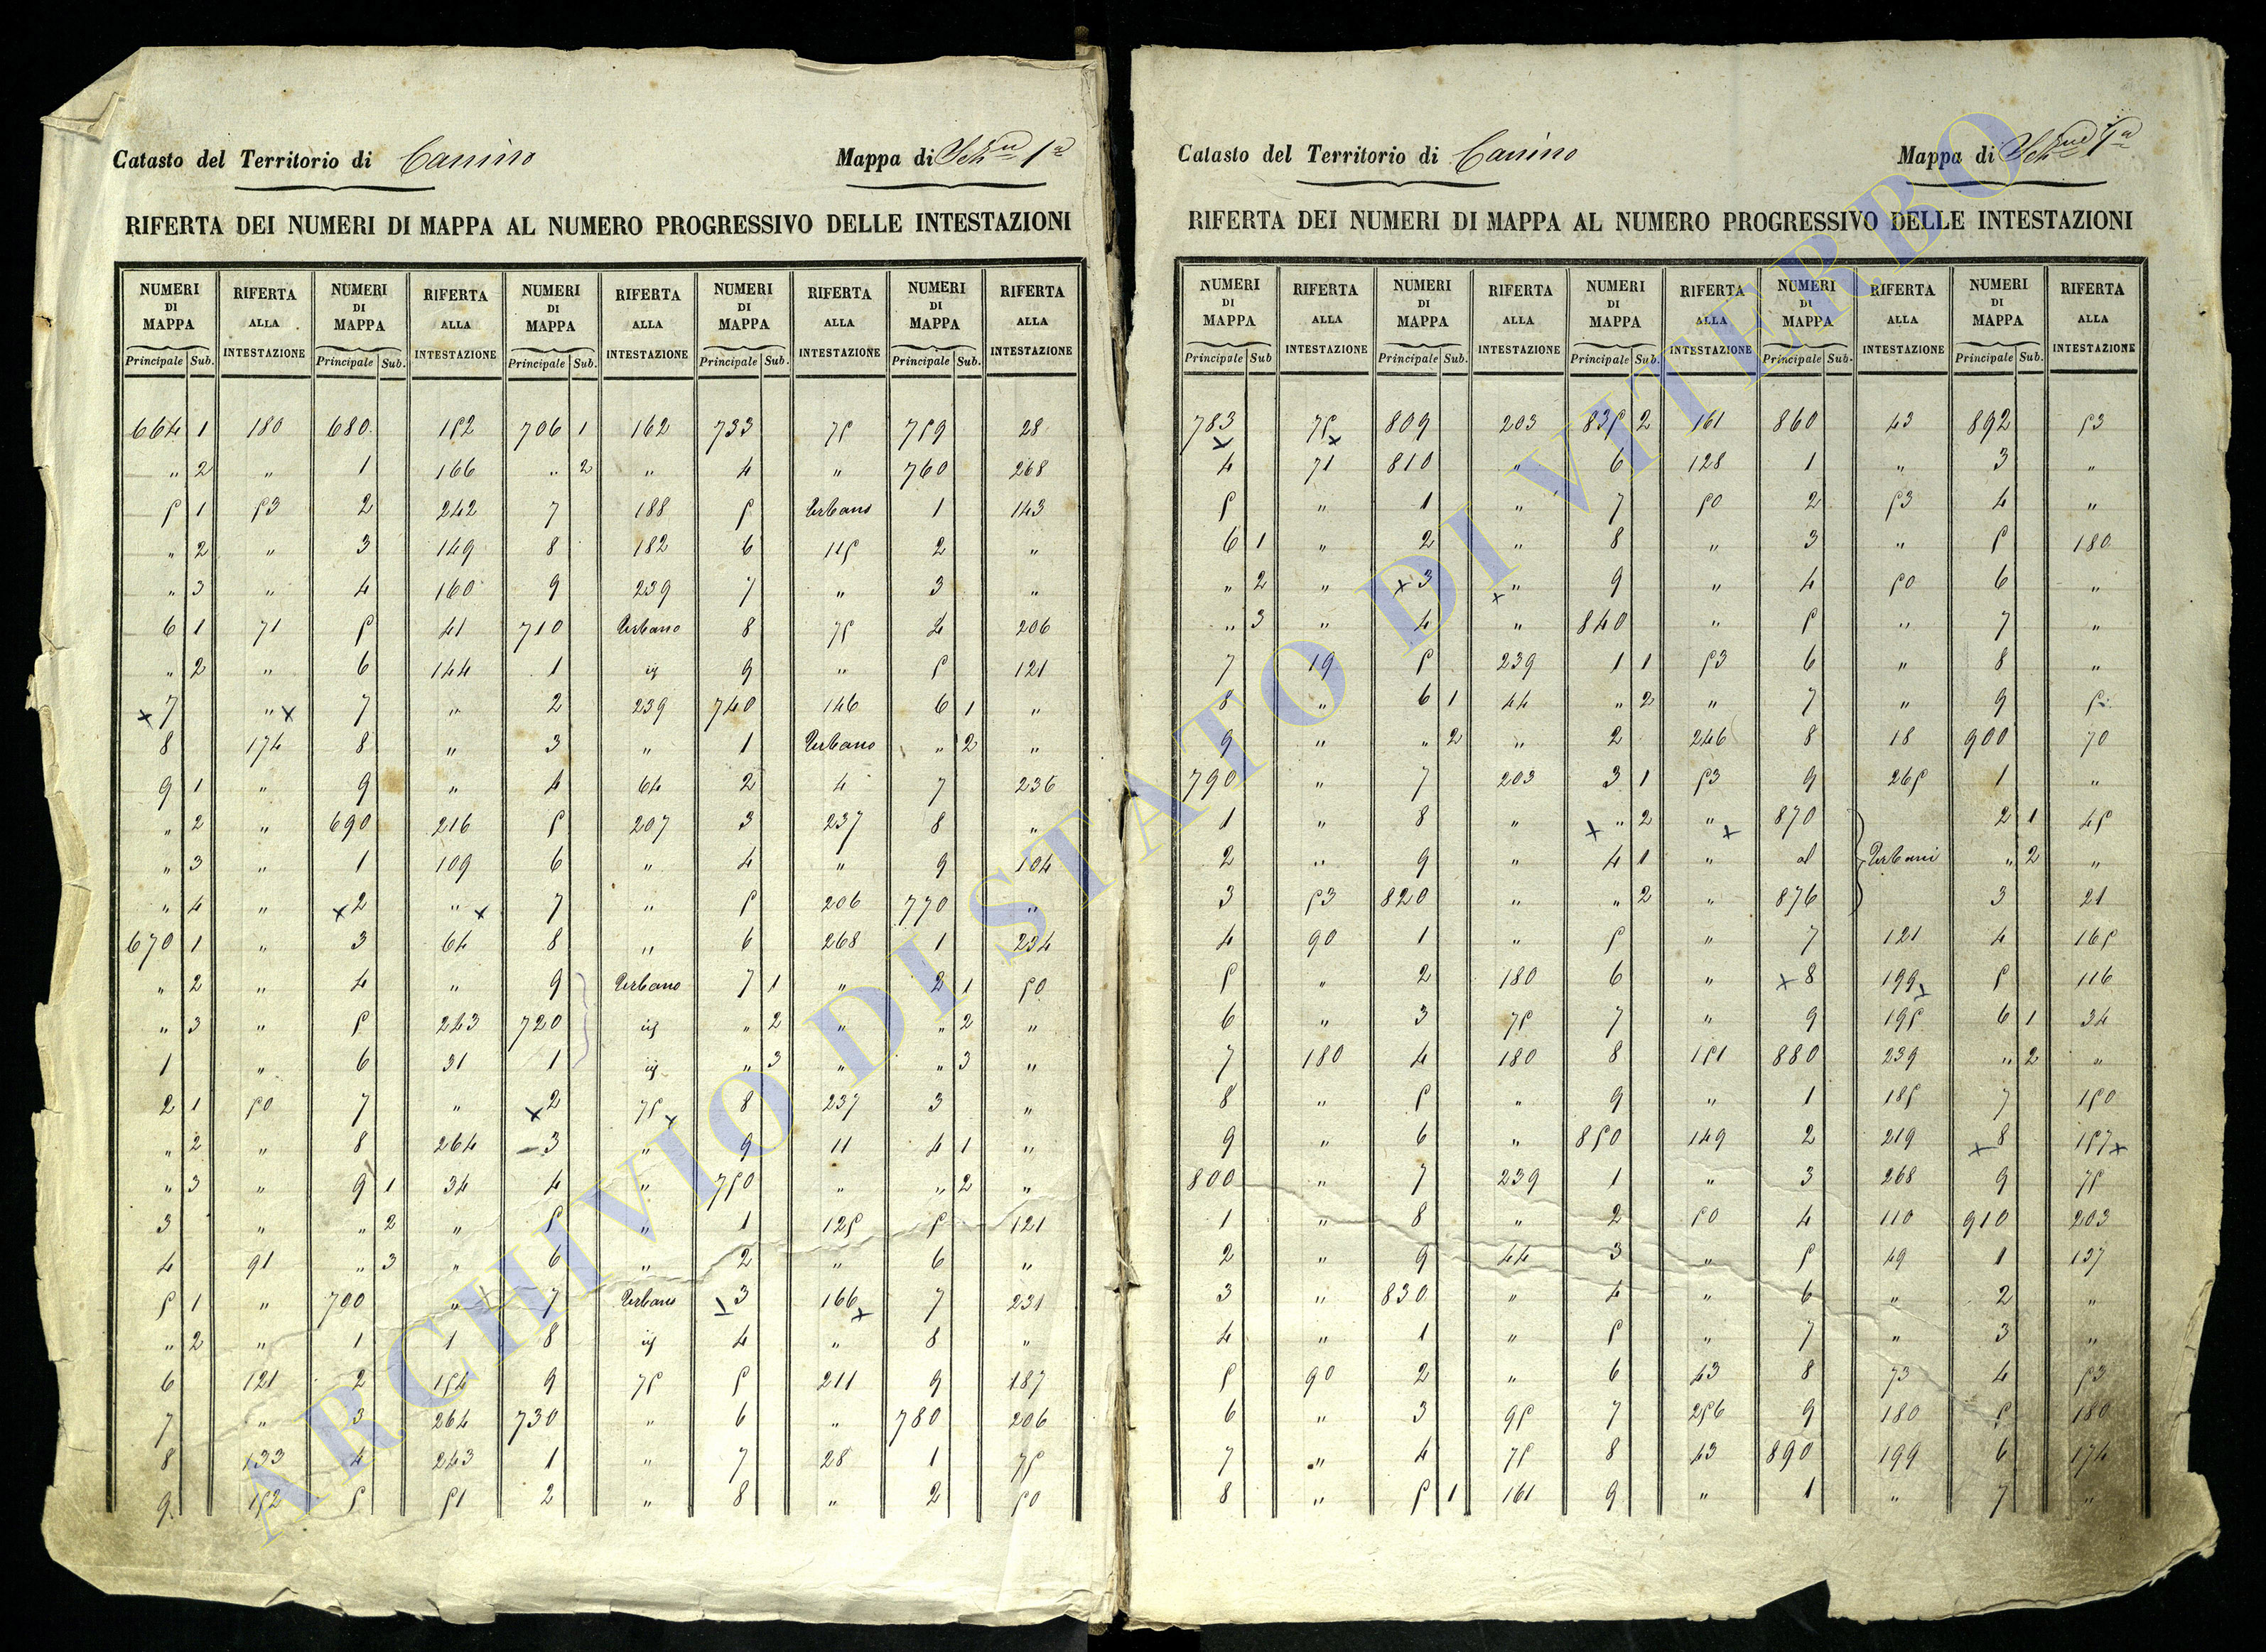 Catasto del Territorio di Canino Mappa di Sez.ne 1a
RIFERTA DEI NUMERI DI MAPPA AL NUMERO PROGRESSIVO DELLE INTESTAZIONI
NUMERI DI MAPPA RIFERTA ALLA INTESTAZIONE NUMERI DI MAPPA RIFERTA ALLA INTESTAZIONE NUMERI DI MAPPA RIFERTA ALLA INTESTAZIONE NUMERI DI MAPPA RIFERTA ALLA INTESTAZIONE NUMERI DI MAPPA RIFERTA ALLA INTESTAZIONE
Principale Sub. Principale Sub. Principale Sub. Principale Sub. Principale Sub.
664 1 180 680 152 706 1 162 733 75 759 28
" 2 " 1 166 " 2 " 4 " 760 268
5 1 53 2 242 7 188 5 Urbano 1 143
" 2 " 3 149 8 182 6 115 2 "
" 3 " 4 160 9 239 7 " 3 "
6 1 71 5 41 710 Urbano 8 75 4 206
" 2 " 6 144 1 id 9 " 5 121
x 7 " x 7 " 2 239 740 146 6 1 "
8 174 8 " 3 " 1 Urbano " 2 "
9 1 " 9 " 4 64 2 4 7 236
" 2 " 690 216 5 207 3 237 8 "
" 3 " 1 109 6 " 4 " 9 104
" 4 " x 2 " x 7 " 5 206 770 "
670 1 " 3 64 8 " 6 268 1 234
" 2 " 4 " 9 Urbano 7 1 " 2 1 50
" 3 " 5 243 720 id " 2 " " 2 "
1 " 6 31 1 id " 3 " " 3 "
2 1 50 7 " x 2 75 x 8 237 3 "
" 2 " 8 264 3 " 9 11 4 1 "
" 3 " 9 1 34 4 " 750 " " 2 "
3 " " 2 " 5 " 1 125 5 121
4 91 " 3 " 6 " 2 " 6 "
5 1 " 700 " 7 Urbano x 3 166 x 7 231
" 2 " 1 1 8 id 4 " 8 "
6 121 2 154 9 75 5 211 9 187
7 " 3 264 730 " 6 " 780 206
8 133 4 243 1 " 7 28 1 75
9 152 5 51 2 " 8 " 2 50
Catasto del Territorio di Canino Mappa di Sez.ne 1a
RIFERTA DEI NUMERI DI MAPPA AL NUMERO PROGRESSIVO DELLE INTESTAZIONI
NUMERI DI MAPPA RIFERTA ALLA INTESTAZIONE NUMERI DI MAPPA RIFERTA ALLA INTESTAZIONE NUMERI DI MAPPA RIFERTA ALLA INTESTAZIONE NUMERI DI MAPPA RIFERTA ALLA INTESTAZIONE NUMERI DI MAPPA RIFERTA ALLA INTESTAZIONE
Principale Sub Principale Sub. Principale Sub. Principale Sub. Principale Sub.
783 x 75 x 809 203 835 2 161 860 43 892 53
4 71 810 " 6 128 1 " 3 "
5 " 1 " 7 50 2 53 4 "
6 1 " 2 " 8 " 3 " 5 180
" 2 " x 3 x " 9 " 4 50 6 "
" 3 " 4 " 840 " 5 " 7 "
7 19 5 239 1 1 53 6 " 8 "
8 " 6 1 44 " 2 " 7 " 9 5
9 " " 2 " 2 246 8 18 900 70
790 " 7 203 3 1 53 9 265 1 "
1 " 8 " x " 2 " x 870 2 1 45
2 " 9 " 4 1 " al Urbani " 2 "
3 53 820 " " 2 " 876 3 21
4 90 1 " 5 " 7 121 4 165
5 " 2 180 6 " x 8 199 x 5 116
6 " 3 75 7 " 9 195 6 1 34
7 180 4 180 8 151 880 239 " 2 "
8 " 5 " 9 " 1 185 7 150
9 " 6 " 850 149 2 219 x 8 157 x
800 " 7 239 1 " 3 268 9 75
1 " 8 " 2 50 4 110 910 203
2 " 9 44 3 " 5 49 1 137
3 " 830 " 4 " 6 " 2 "
4 " 1 " 5 " 7 " 3 "
5 90 2 " 6 43 8 73 4 53
6 " 3 95 7 256 9 180 5 180
7 " 4 75 8 43 890 199 6 174
8 " 5 1 161 9 " 1 " 7 "
ARCHIVIO DI STATO DI VITERBO